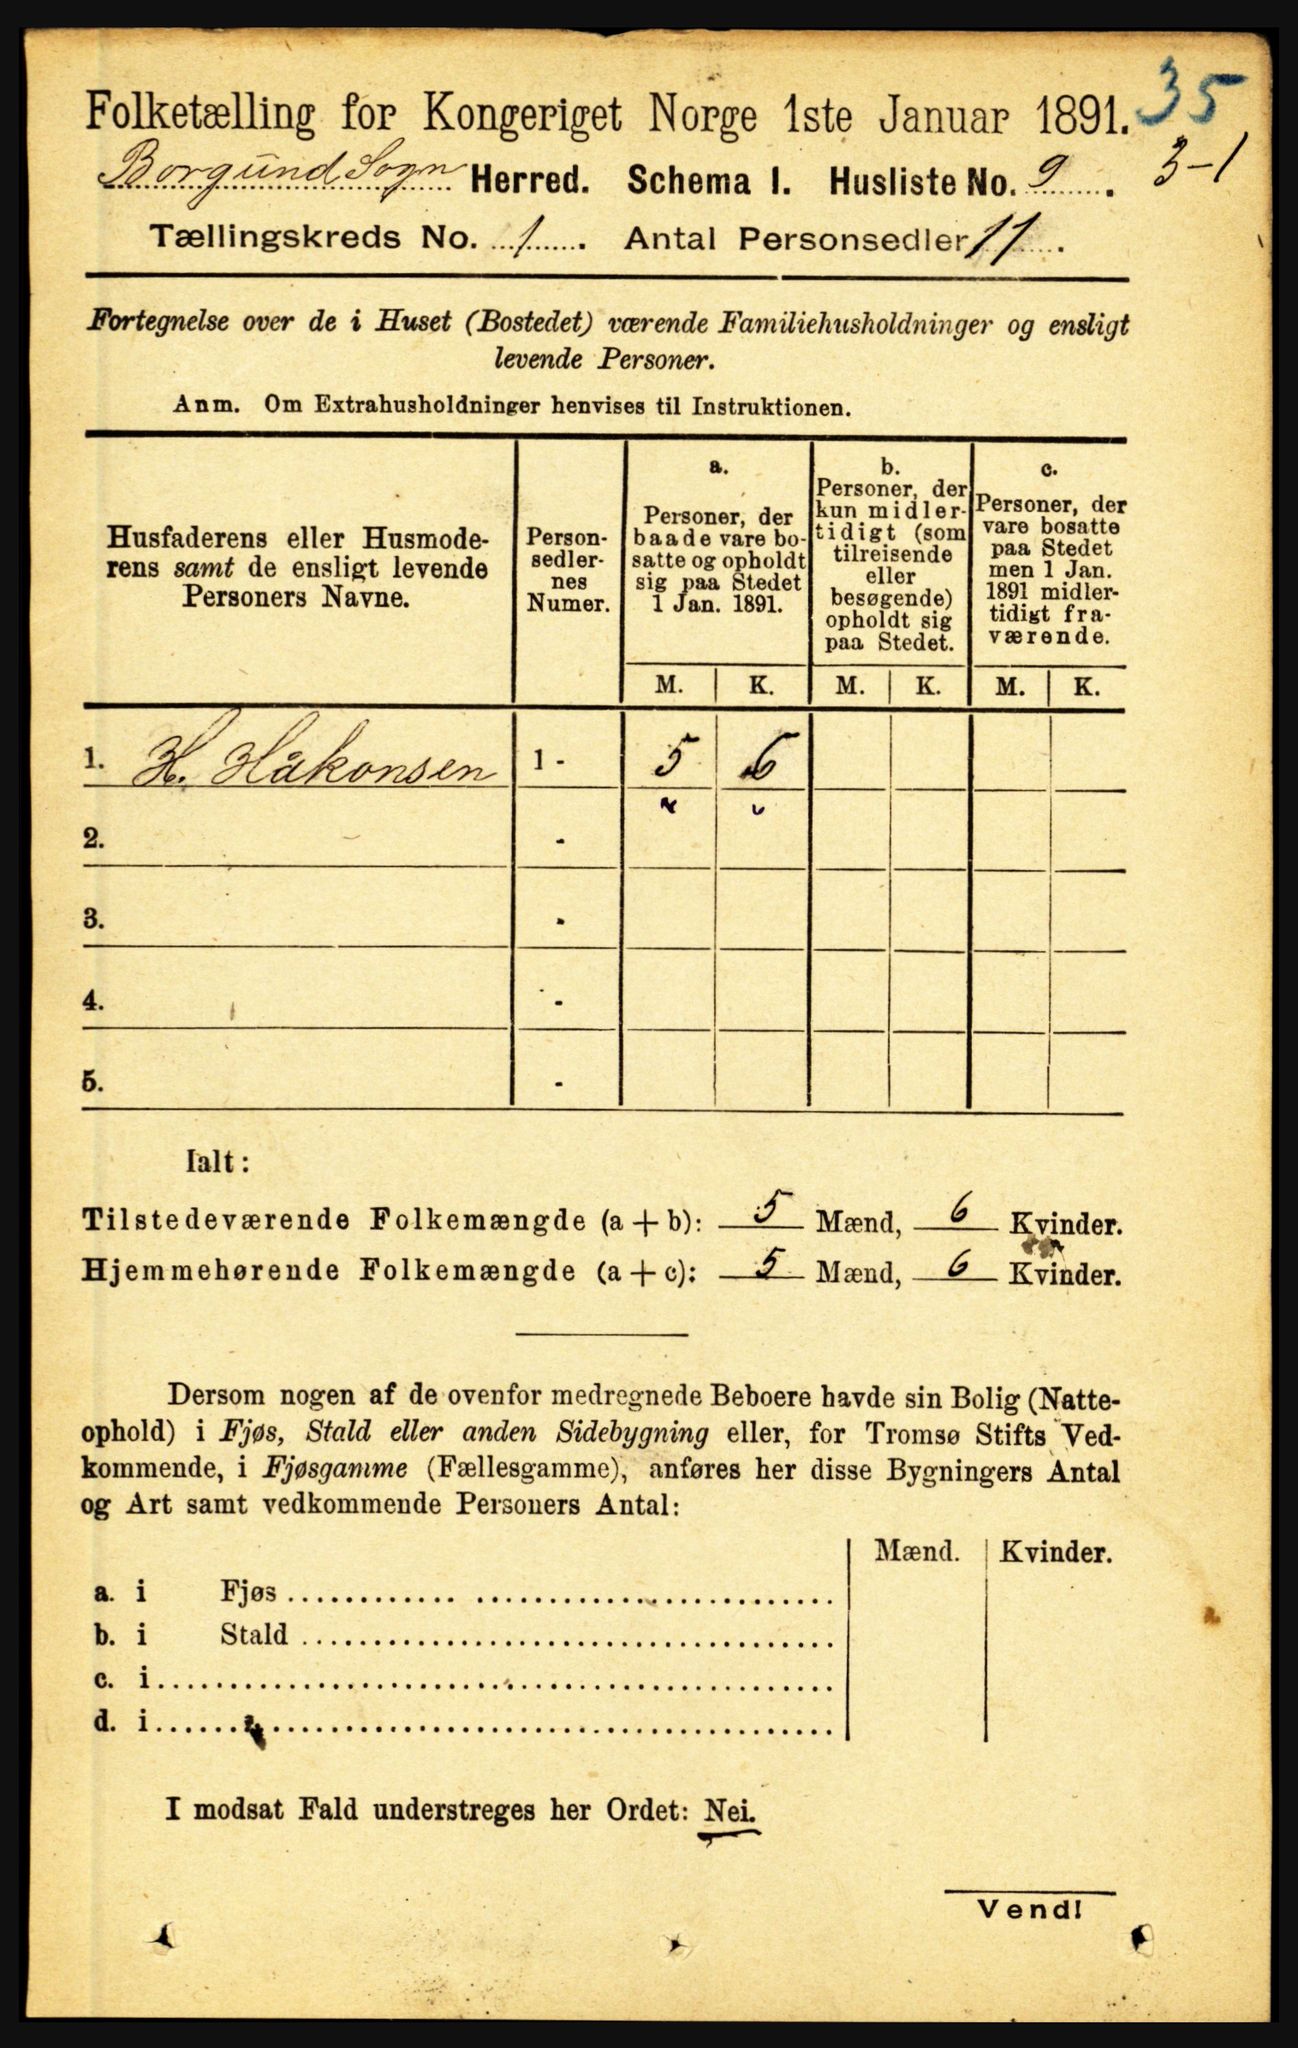 35
Folketælling for Kongeriget Norge 1ste Januar 1891.
3-1
Borgund Sogn Herred. Schema I. Husliste No. 9.
Tællingskreds No. 1. Antal Personsedler 11.
Fortegnelse over de i Huset (Bostedet) værende Familiehusholdninger og ensligt
levende Personer.
Anm. Om Extrahusholdninger henvises til Instruktionen.
Husfaderens eller Husmode-
rens samt de ensligt levende
Personers Navne.
Person-
sedler-
nes
Numer.
a.
Personer, der
baade vare bo-
satte og opholdt
sig paa Stedet
1 Jan. 1891.
b.
Personer, der
kun midler-
tidigt (som
tilreisende
eller
besøgende)
opholdt sig
paa Stedet.
c.
Personer, der
vare bosatte
paa Stedet
men 1 Jan.
1891 midler-
tidigt fra-
værende.
M. K. M. K. M. K.
1. H. Håkonsen 1 - 5 6
2. -
3. -
4. -
5. -
Ialt:
Tilstedeværende Folkemængde (a + b): 5 Mænd, 6 Kvinder.
Hjemmehørende Folkemængde (a + c): 5 Mænd, 6 Kvinder.
Dersom nogen af de ovenfor medregnede Beboere havde sin Bolig (Natte-
ophold) i Fjøs, Stald eller anden Sidebygning eller, for Tromsø Stifts Ved-
kommende, i Fjøsgamme (Fællesgamme), anføres her disse Bygningers Antal
og Art samt vedkommende Personers Antal:
Mænd. Kvinder.
a. i Fjøs
b. i Stald
c. i
d. i
I modsat Fald understreges her Ordet: Nei.
Vend!